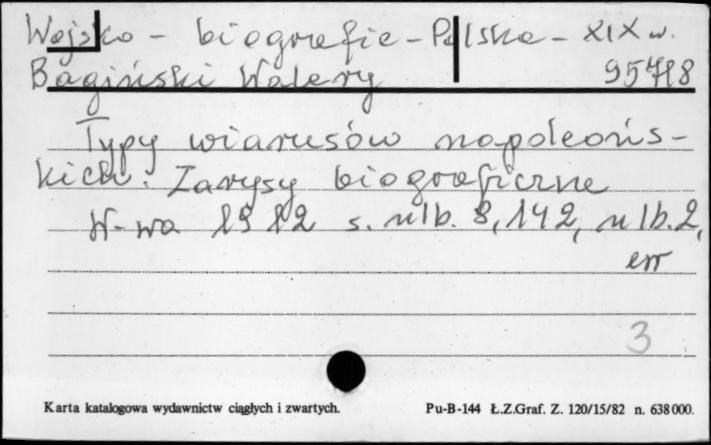 Wojsko - biografie - Polska - XIX w.
Bagiński Walery 95718
Typy wiarusów napoleońs-
kich. Zarysy biograficzne
W-wa 1912 s. nlb. 8, 142, nlb. 2,
err
3
Karta katalogowa wydawnictw ciągłych i zwartych. Pu-B-144 Ł.Z.Graf. Z. 120/15/82 n. 638 000.